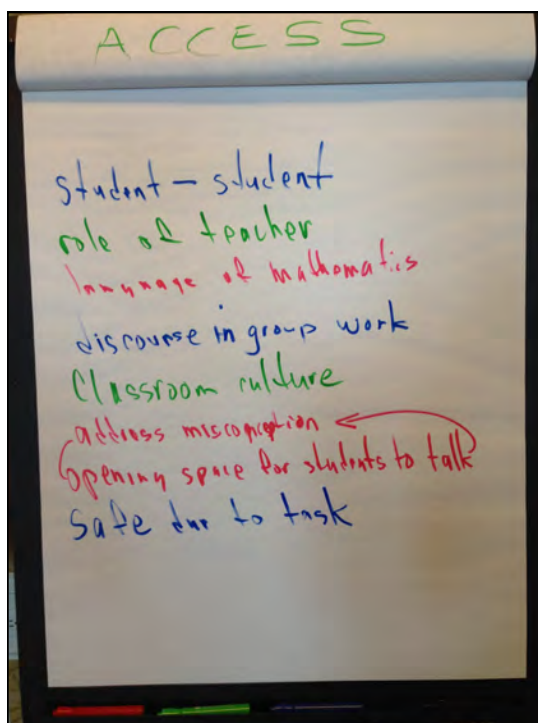 ACCESS
student - student
role of teacher
language of mathematics
discourse in group work
Classroom culture
address misconception
opening space for students to talk
Safe due to task